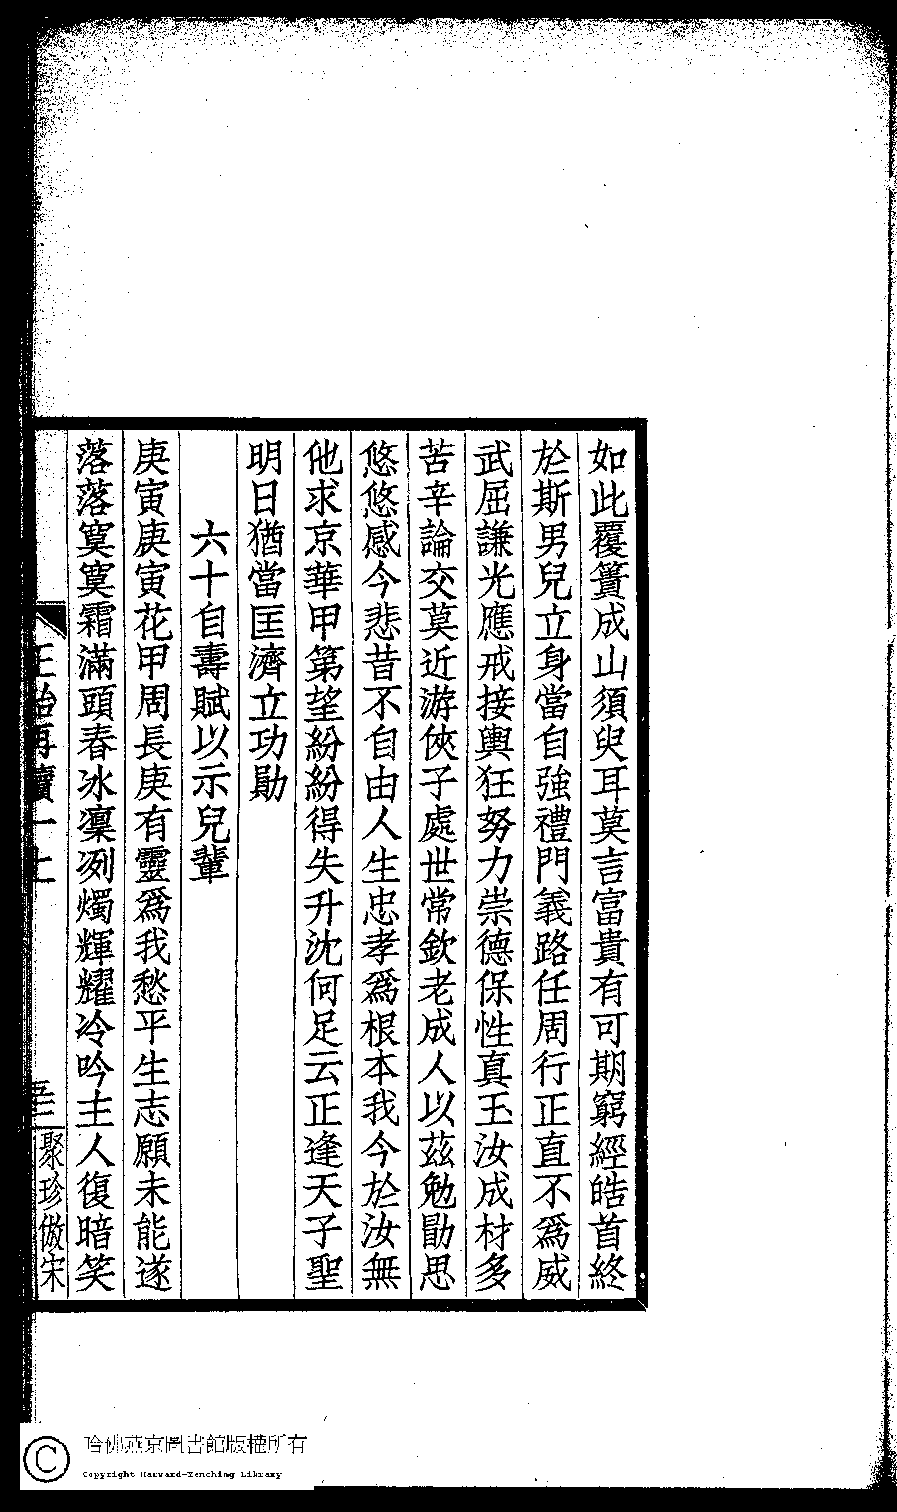 如此覆簣成山須臾耳莫言富貴有可期窮經皓首終
於斯男兒立身當自強禮門義路任周行正直不爲威
武屈謙光應戒接輿狂努力崇德保性真玉汝成材多
苦辛論交莫近游俠子處世常欽老成人以茲勉勖思
悠悠感今悲昔不自由人生忠孝爲根本我今於汝無
他求京華甲第望紛紛得失升沈何足云正逢天子聖
明日猶當匡濟立功勛
六十自壽賦以示兒輩
庚寅庚寅花甲周長庚有靈爲我愁平生志願未能遂
落落寞寞霜滿頭春冰凜冽燭輝耀冷吟主人復暗笑
再續一上
聚珍倣宋
哈佛燕京圖書館版權所有
Copyright Harvard-Yenching Library